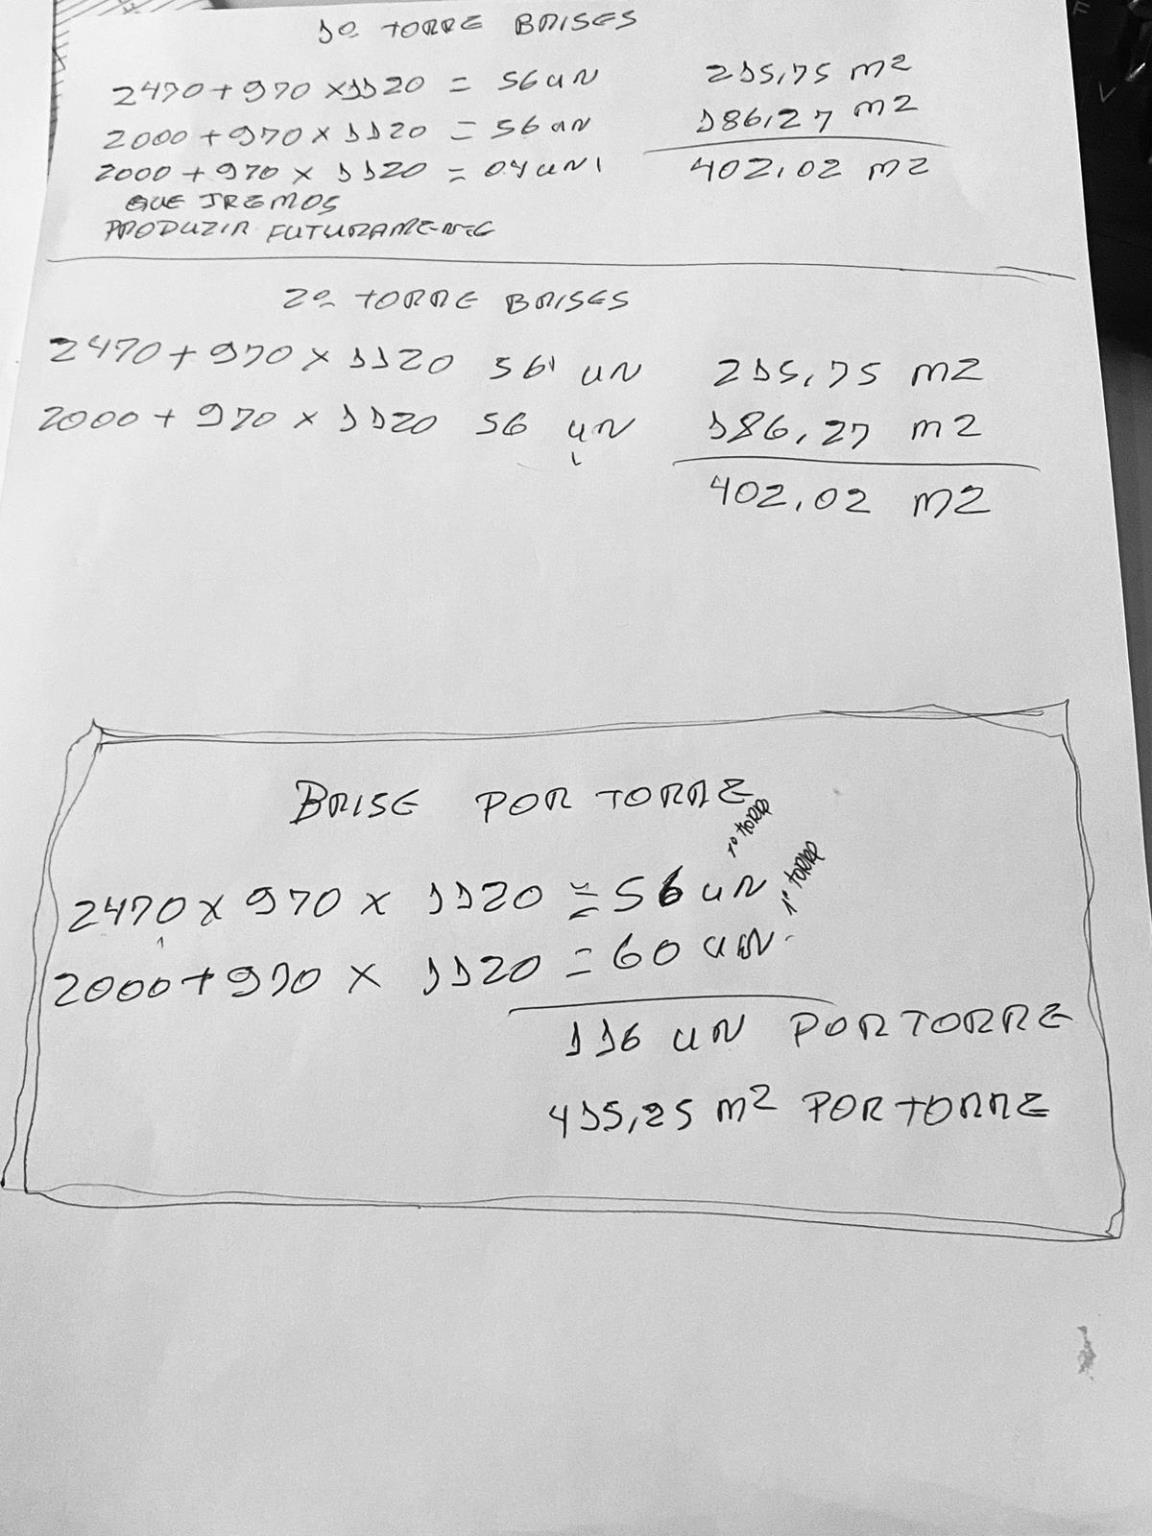 1º TORRE BRISES
2470+970 x1120 = 56 UN 215,75 m2
2000+970 x 1120 = 56 UN 186,27 m2
2000+970 x 1120 = 04 UNI 402,02 m2
QUE IREMOS
PRODUZIR FUTURAMENTE
2º TORRE BRISES
2470+970 x 1120 56 UN 215,75 m2
2000+970 x 1120 56 UN 186,27 m2
402,02 m2
BRISE POR TORRE
2470 x 970 x 1120 = 56 UN 1º TORRE
2000+970 x 1120 = 60 UN. 1º TORRE
116 UN POR TORRE
415,25 m2 POR TORRE